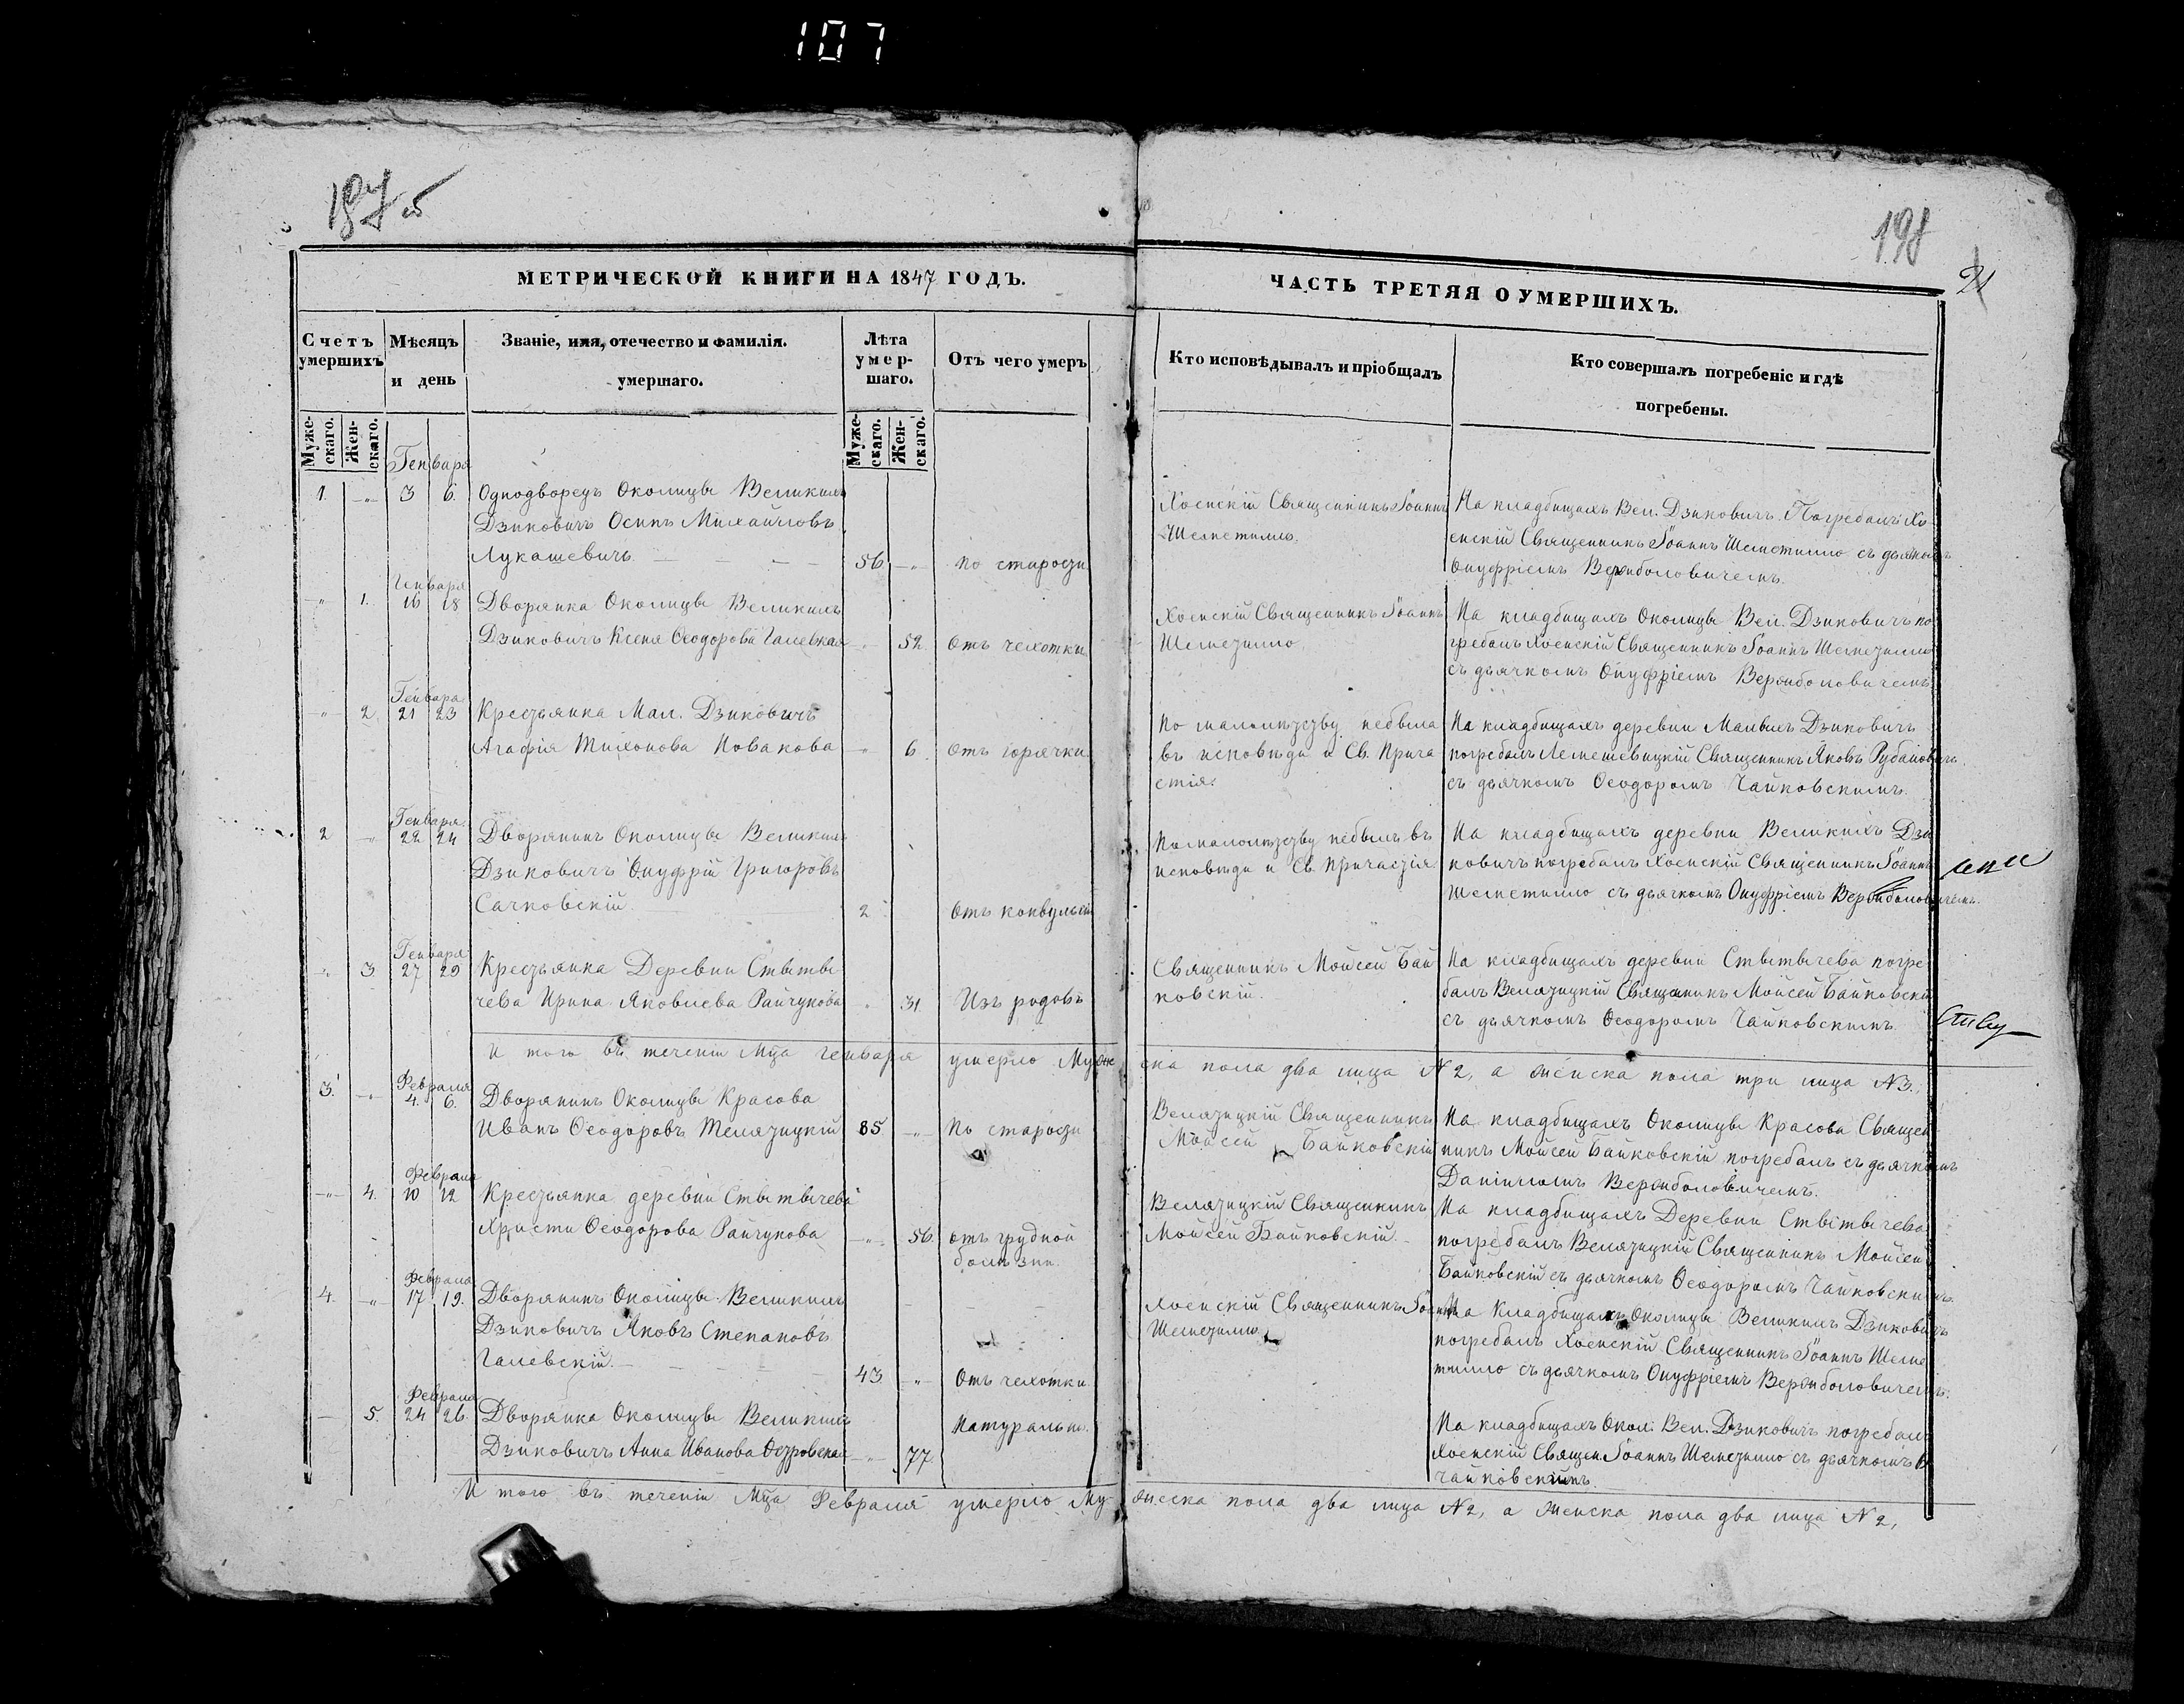 107
198
21
МЕТРИЧЕСКОЙ КНИГИ НА 1847 ГОДЪ.
ЧАСТЬ ТРЕТЯЯ О УМЕРШИХЪ.
Счетъ умершихъ
Мѣсяцъ и день
Званіе, имя, отечество и фамилія.
умершаго.
Лѣта умер-шаго.
Отъ чего умеръ
Кто исповѣдывалъ и пріобщалъ
Кто совершалъ погребеніе и гдѣ
погребены.
Муже-скаго.
Жен-скаго.
Муже-скаго.
Жен-скаго.
Генваря
1. -"- 3 6. Однодворецъ Околицы Великихъ
Дзиковичъ Осипъ Михайловъ
Лукашевичъ 56 -"- по старости
Хоенскій Священникъ Іоаннъ
Шеметилло.
На кладбищахъ Вел. Дзиковичъ Погребалъ Хо
енскій Священникъ Іоаннъ Шеметилло съ дьячкомъ
Онуфріемъ Вержболовичемъ.
Генваря
-"- 1. 16 18 Дворянка Околицы Великихъ
Дзиковичъ Ксеня Ѳеодорова Галевская -"- 52. Отъ чехотки
Хоенскій Священникъ Іоаннъ
Шеметилло
На кладбищахъ Околицы Вел. Дзиковичъ по
гребалъ Хоенскій Священникъ Іоаннъ Шеметилло
съ дьячкомъ Онуфріемъ Вержболовичемъ.
Генваря
-"- 2. 21 23 Крестьянка Мал. Дзиковичъ
Агафія Тихонова Новакова -"- 6. отъ горячки
По малолѣтству небыла
въ исповѣди и Св. Прича
стія.
На кладбищахъ деревни Малыхъ Дзиковичъ
погребалъ Лемешевицкій Священникъ Яковъ Рубановичъ
съ дьячкомъ Ѳеодоромъ Чайковскимъ.
Генваря
2 -"- 22 24 Дворянинъ Околицы Великихъ
Дзиковичъ Онуфрій Григоровъ
Сачковскій 2. Отъ конвульсіи
По малолѣтству небылъ въ
исповѣди и Св. Причастія
На кладбищахъ деревни Великихъ Дзи
ковичъ погребалъ Хоенскій Священникъ Іоаннъ
Шеметилло съ дьячкомъ Онуфріемъ Вержболовичемъ.
Генваря
-"- 3. 27 29 Крестьянка Деревни Ствыты
чева Ирина Яковлева Райчукова -"- 31 Изъ родовъ
Священникъ Мойсей Бай
ковскій.
На кладбищахъ деревни Ствытычева погре
балъ Велятицкій Священникъ Мойсей Байковскій
съ дьячкомъ Ѳеодоромъ Чайковскимъ.
И того въ теченіи Мца Генваря умерло Муже
ска пола два лица № 2, а женска пола три лица № 3.
Февраля
3. -"- 4. 6. Дворянинъ Околицы Красова
Иванъ Ѳеодоровъ Телятицкій 85. -"- По старости
Велятицкій Священникъ
Мойсей Байковскій
На кладбищахъ Околицы Красова Священ
никъ Мойсей Байковскій погребалъ съ дьячкомъ
Даніиломъ Вержболовичемъ.
Февраля
-"- 4. 10 12 Крестьянка деревни Ствытычева
Христи Ѳеодорова Райчукова -"- 56. отъ грудной
болѣзни.
Велятицкій Священникъ
Мойсей Байковскій.
На кладбищахъ Деревни Ствытычева
погребалъ Велятицкій Священникъ Мойсей
Байковскій съ дьячкомъ Ѳеодоромъ Чайковскимъ.
Февраля
4. -"- 17 19. Дворянинъ Околицы Великихъ
Дзиковичъ Яковъ Степановъ
Галевскій. 43 -"- Отъ чехотки.
Хоенскій Священникъ Іоаннъ
Шеметилло
На Кладбищахъ Околицы Великихъ Дзиковичъ
погребалъ Хоенскій Священникъ Іоаннъ Шеме
тилло съ дьячкомъ Онуфріемъ Вержболовичемъ.
Февраля
- 5. 24 26. Дворянка Околицы Великихъ
Дзиковичъ Анна Иванова Островская -"- 77. Натурально.
На кладбищахъ Окол. Вел. Дзиковичъ погребалъ
Хоенскій Священ. Іоаннъ Шеметилло съ дьячкомъ
Чайковскимъ.
И того въ теченіи Мца Февраля умерло Му
жеска пола два лица № 2, а женска пола два лица № 2,